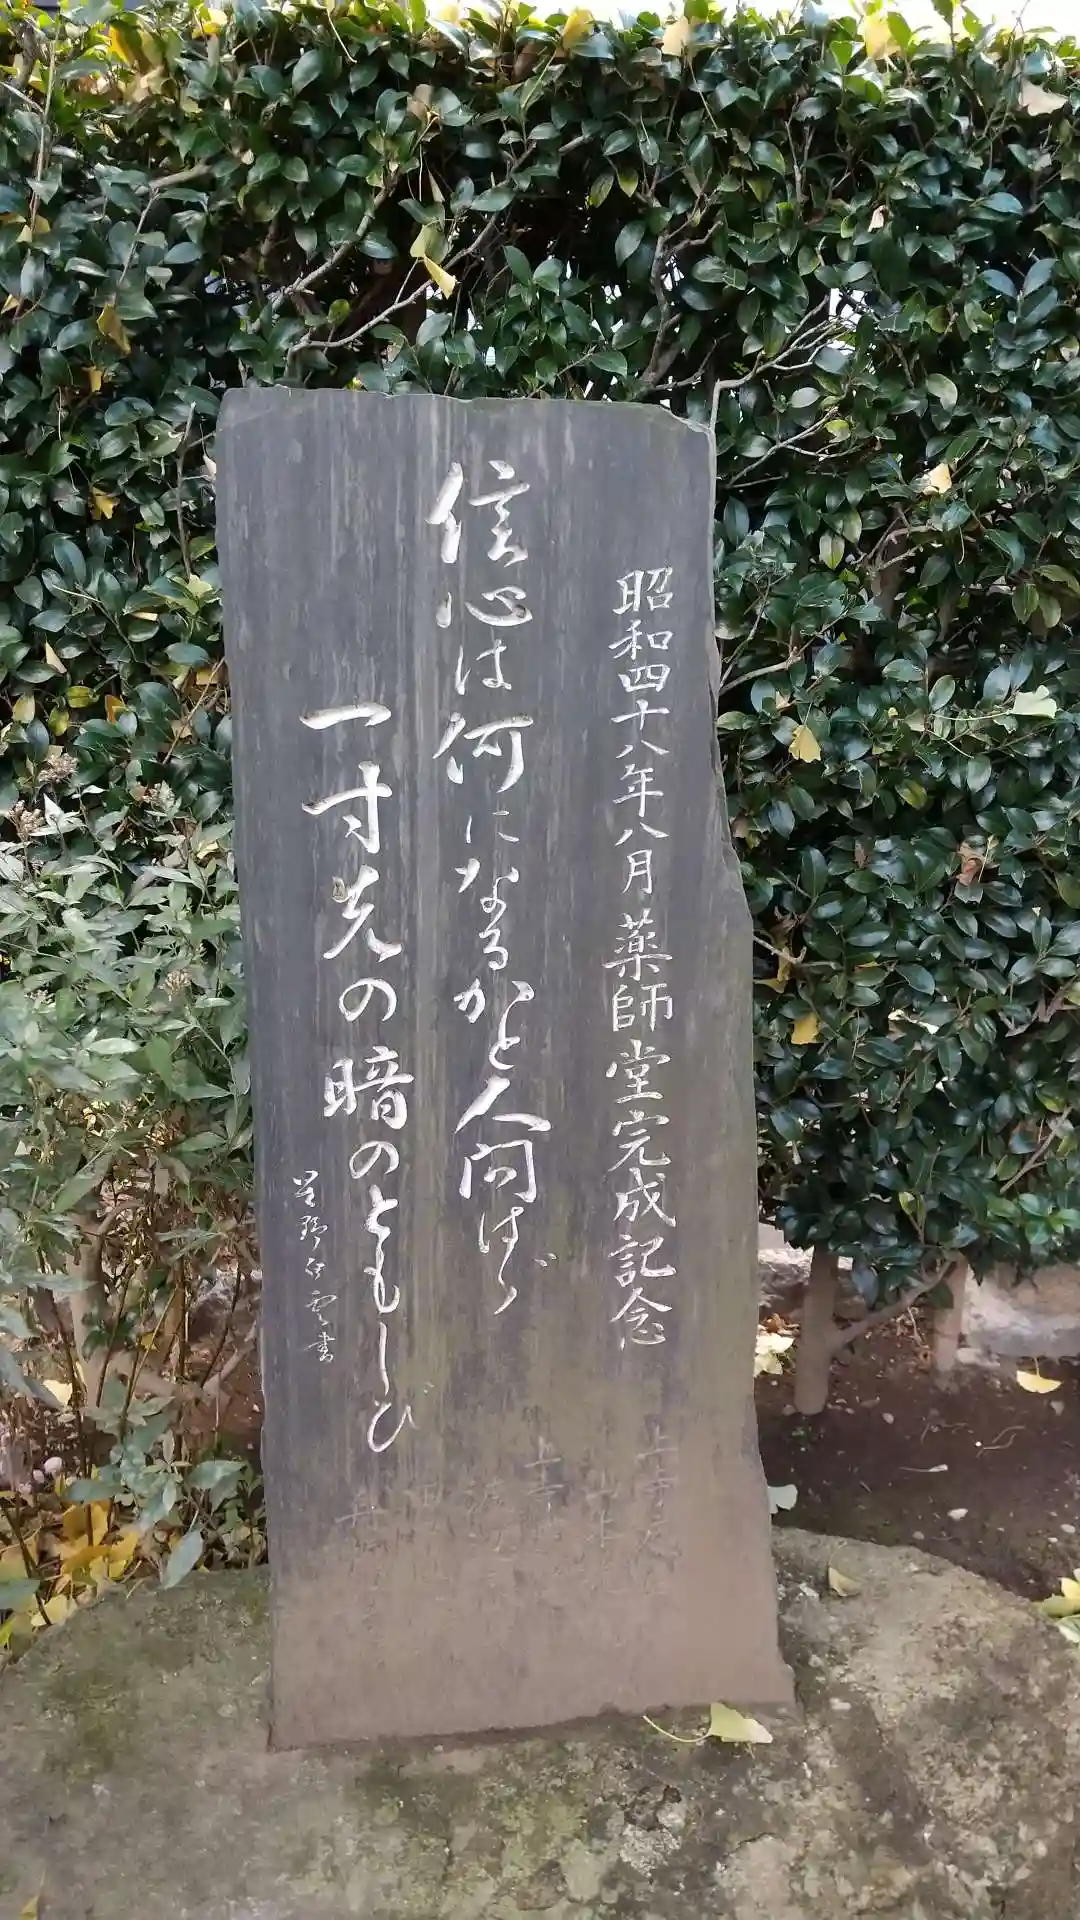 昭和四十八年八月薬師堂完成記念
信心は何になるかと人問はゞ
一寸先の暗のともしび